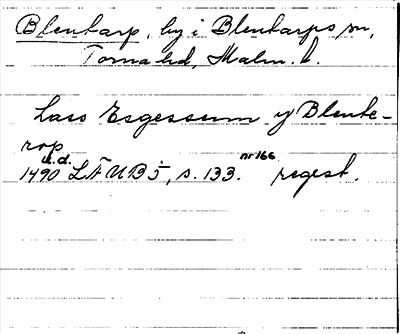 Blentarp, by i Blentarps sn,
Torna hd, Malm. l.
Lass Esgessum y Blente-
rop
1490 u.d. LÄUB 5, s. 133. nr 166 regest.